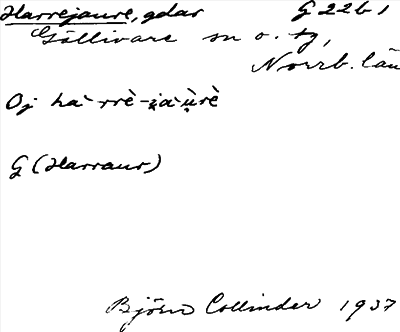 Harrejaure, gdar G 22b1
Gällivare sn o. tg,
Norrb. län
Oj hà rrè-jà ùrè
G (Harraur)
Björn Collinder 1937